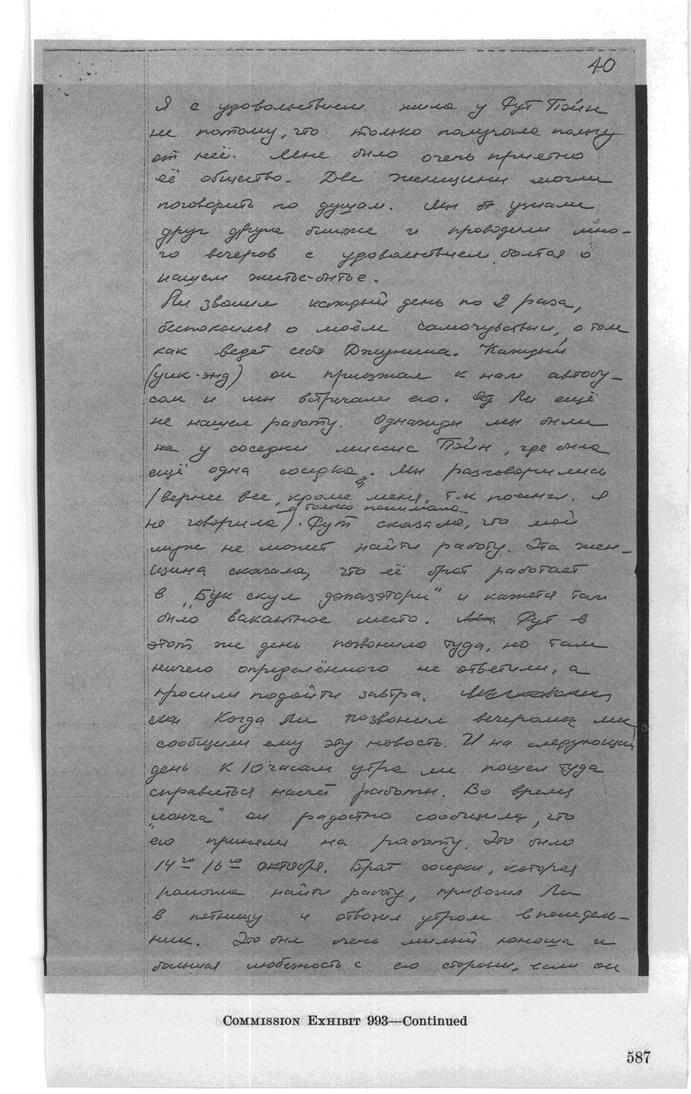 40
Я с удовольствием жила у Рут Пэйн
не потому, что только получала помощь
от неё. Мне было очень приятно
её общество. Две женщины могли
поговорить по душам. Мы узнали
друг друга ближе и проводили мно-
го вечеров с удовольствием болтая о
нашем житье-бытье.
Ли звонил каждый день по 2 раза,
беспокоился о моём самочувствии, о том
как ведет себя Джунина. Каждый
(уик-энд) он приезжал к нам автобу-
сом и мы встречали его. Ли ещё
не нашел работу. Однажды мы были
у соседки миссис Пэйн, где была
ещё одна соседка. Мы разговорились
(вернее все, кроме меня, т.к. по англ. я
я только понимала
не говорила). Рут сказала, что мой
муж не может найти работу. Эта жен-
щина сказала, что её брат работает
в "Бук скул дэпазэтори" и кажется там
было вакантное место. Рут в
этот же день позвонила туда, но там
ничего определённого не ответили, а
просили подойти завтра.
Когда Ли позвонил вечером мы
сообщили ему эту новость. И на следующий
день к 10 часам утра Ли пошел туда
справиться насчет работы. Во время
"лонча" он радостно сообщил, что
его приняли на работу. Это было
14го 16го октября. Брат соседки, которая
помогла найти работу, привозил Ли
в пятницу и отвозил утром в понедель-
ник. Это был очень милый юноша и
большая любезность с его стороны, если он
COMMISSION EXHIBIT 993—Continued
587